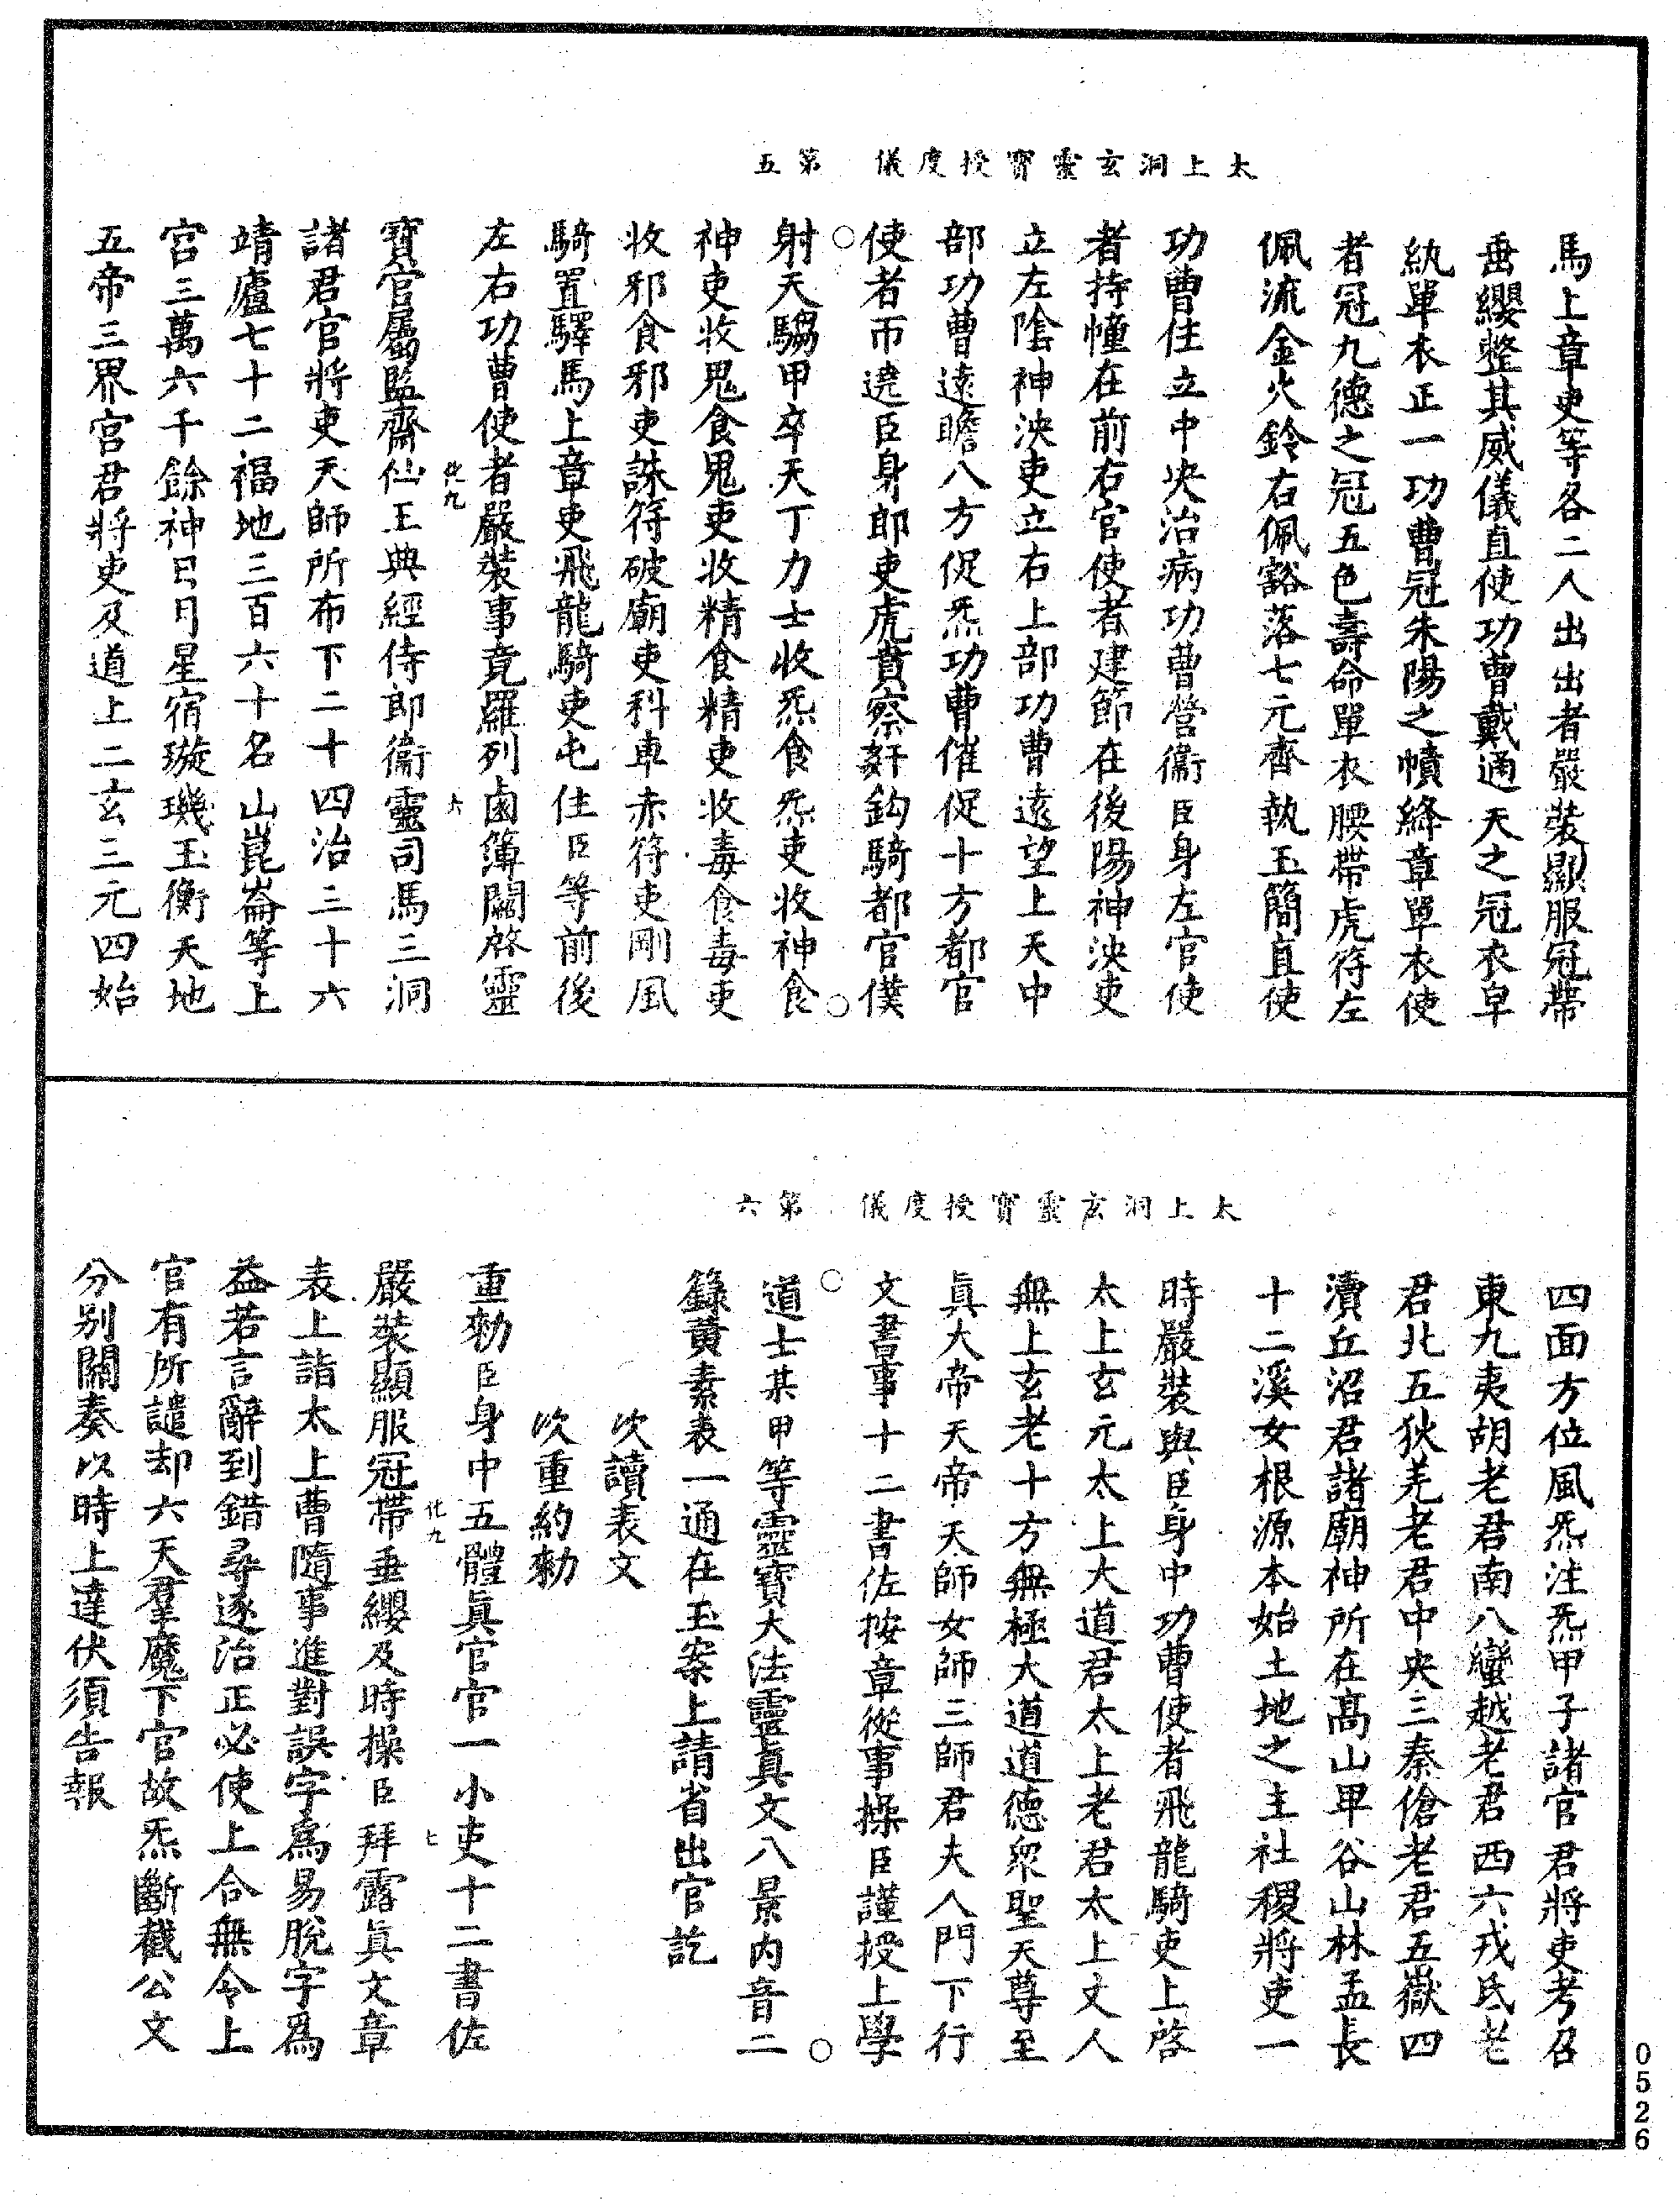 太上洞玄靈寶授度儀　第五
馬上章吏等各二人出出者嚴裝顯服冠帶
垂纓整其威儀直使功曹戴通天之冠衣皁
紈單衣正一功曹冠朱陽之幘絳章單衣使
者冠九德之冠五色壽命單衣腰帶虎符左
佩流金火鈴右佩豁落七元齊執玉簡直使
功曹住立中央治病功曹營衞臣身左官使
者持幢在前右官使者建節在後陽神泱吏
立左陰神泱吏立右上部功曹遠望上天中
部功曹遠瞻八方促炁功曹催促十方都官
使者帀遶臣身郎吏虎賁察姧鈎騎都官僕
射天騶甲卒天丁力士收炁食炁吏收神食
神吏收鬼食鬼吏收精食精吏收毒食毒吏
收邪食邪吏誅符破廟吏科車赤符吏剛風
騎置驛馬上章吏飛龍騎吏屯住臣等前後
左右功曹使者嚴裝事竟羅列鹵簿關啓靈
化九　六
寶官屬監齋仙王典經侍郎衞靈司馬三洞
諸君官將吏天師所布下二十四治三十六
靖廬七十二福地三百六十名山崑崙等上
宮三萬六千餘神日月星宿璇璣玉衡天地
五帝三界官君將吏及道上二玄三元四始
太上洞玄靈寶授度儀　第六
四面方位風炁注炁甲子諸官君將吏考召
東九夷胡老君南八蠻越老君西六戎氐老
君北五狄羌老君中央三秦傖老君五嶽四
瀆丘沼君諸廟神所在高山卑谷山林孟長
十二溪女根源本始土地之主社稷將吏一
時嚴裝與臣身中功曹使者飛龍騎吏上啓
太上玄元太上大道君太上老君太上丈人
無上玄老十方無極大道道德衆聖天尊至
眞大帝天帝天師女師三師君夫人門下行
文書事十二書佐按章從事操臣謹授上學
道士某甲等靈寶大法靈眞文八景内音二
籙黄素表一通在玉案上請省出官訖
次讀表文
次重約勑
重勑臣身中五體眞官官一小吏十二書佐
化九　七
嚴裝顯服冠帶垂纓及時操臣拜露眞文章
表上詣太上曹隨事進對誤字爲易脫字爲
益若言辭到錯尋逐治正必使上合無令上
官有所譴却六天羣魔下官故炁斷截公文
分别關奏以時上達伏須告報
0526